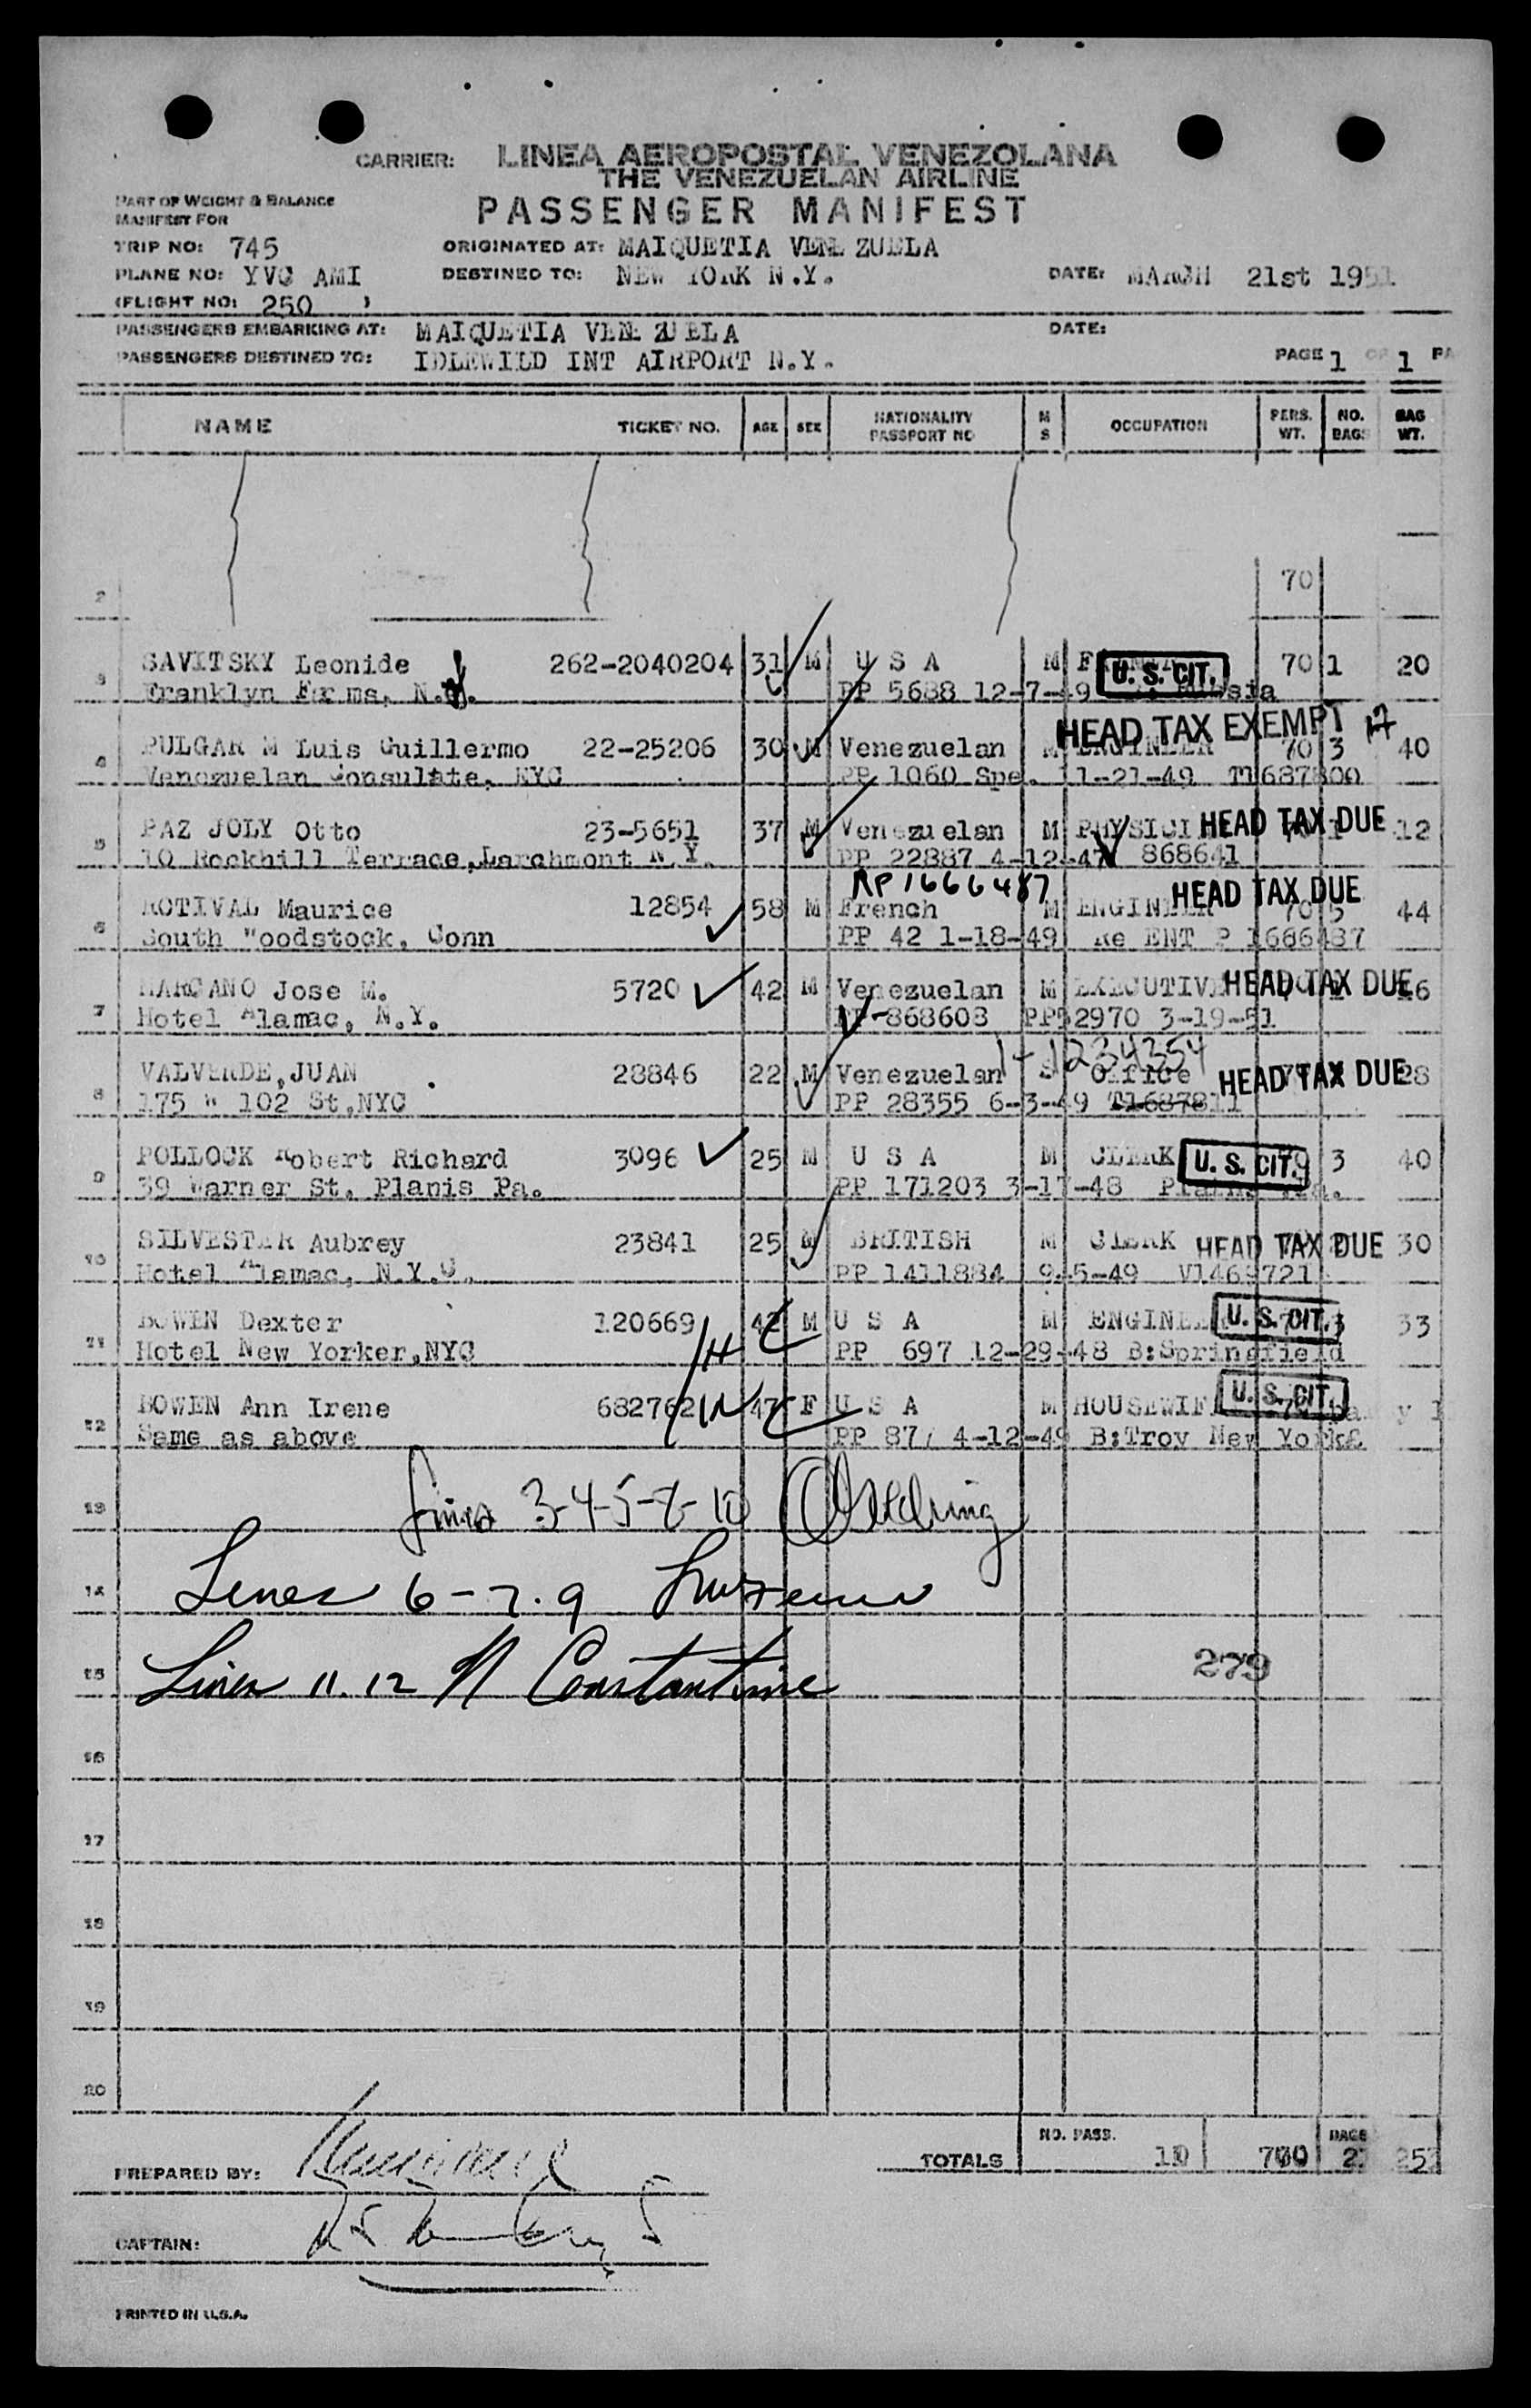 CARRIER: LINEA AEROPOSTAL VENEZOLANA
THE VENEZUELAN AIRLINE
PART OF WEIGHT & BALANCE
MANIFEST FOR
PASSENGER MANIFEST
TRIP NO: 745 ORIGINATED AT: MAIQUETIA VENE ZUELA
PLANE NO: YVC AMI DESTINED TO: NEW YORK N.Y. DATE: MARCH 21st 1951
(FLIGHT NO: 250 )
PASSENGERS EMBARKING AT: MAIQUETIA VENE ZUELA DATE:
PASSENGERS DESTINED TO: IDLEWILD INT AIRPORT N.Y. PAGE 1 OF 1 PA
NAME TICKET NO. AGE SEX NATIONALITY PASSPORT NO M S OCCUPATION PERS. WT. NO. BAGS BAG WT.
2 70
3 SAVITSKY Leonide 262-2040204 31 M U S A M U. S. CIT. 70 1 20
Franklyn Farms, N.J. PP 5688 12-7-49
HEAD TAX EXEMPT
4 PULGAR M Luis Guillermo 22-25206 30 M Venezuelan M ENGINEER 70 3 40
Venezuelan Consulate, NYC PP 1060 Spe. 11-21-49 T1687800
5 PAZ JOLY Otto 23-5651 37 M Venezuelan M HEAD TAX DUE 12
10 Rockhill Terrace, Larchmont N.Y. PP 22887 4-12-47 868641
RP 1666487 HEAD TAX DUE
6 ROTIVAL Maurice 12854 58 M French M ENGINEER 70 5 44
South Woodstock, Conn PP 42 1-18-49 Re ENT P 1666487
7 MARCANO Jose M. 5720 42 M Venezuelan M EXECUTIVE HEAD TAX DUE
Hotel Alamac, N.Y. 868608 PP52970 3-19-51
1-1234354
8 VALVERDE,JUAN 28846 22 M Venezuelan S Office HEAD TAX DUE 28
175 W 102 St,NYC PP 28355 6-3-49 T1687811
9 POLLOCK Robert Richard 3096 25 M U S A M CLERK U. S. CIT. 3 40
39 Warner St. Planis Pa. PP 171203 3-17-48
10 SILVESTER Aubrey 23841 25 M BRITISH M CLERK HEAD TAX DUE 30
Hotel Alamac, N.Y.C. PP 1411884 9-5-49 V1469721
11 BOWEN Dexter 120669 42 M U S A M ENGINEER U. S. CIT. 3 33
Hotel New Yorker,NYC PP 697 12-29-48 B:Springfield
12 BOWEN Ann Irene 682762 47 F U S A M HOUSEWIFE U. S. CIT.
Same as above PP 87 4-12-49 B:Troy New York
13 Lines 3-4-5-8-10
14 Lines 6-7.9
15 Lines 11.12 N Constantine 279
16
17
18
19
20
TOTALS NO. PASS. 10 700 BAGS
PREPARED BY:
CAPTAIN:
PRINTED IN U.S.A.